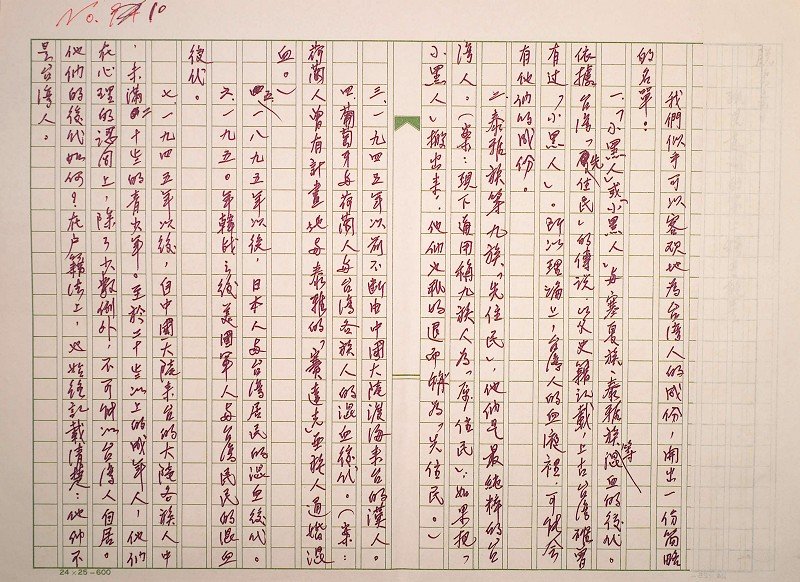 No. 10
我們似乎可以客观地為台湾人的成份，開出一份簡略
的名單：
一、「小黑人」或「小黑人」与賽夏族、泰雅族等混血的後代。
依據台湾「先住民」的傳說，以及史籍記載，上古台湾確曾
有过「小黑人」。所以理論上，台湾人的血液裡，可能会
有他们的成份。
二、泰雅族等九族「先住民」，他们是最純粹的台
湾人。（案：現下通用稱九族人為「原住民」；如果把「
小黑人」搬出来，他们也我的退而稱為「先住民。）
三、一九四五年以前不断由中國大陸渡海来台的漢人。
四、葡萄牙与荷蘭人与台湾各族人的混血後代。（案：
荷蘭人曾有計畫地与泰雅的「賽達克」亞族人通婚混
血。）
五、一八九五年以後，日本人与台湾居民的混血後代。
六、一九五〇年韓战之後美國軍人与台湾民民的混血
後代。
七、一九四五年以後，自中國大陸来台的大陸各族人中
，未滿二十岁的青少年。至於二十岁以上的成年人，他们
在心理的認同上，除了少数例外，不可能以台湾人自居。
他们的後代如何？在户籍法上，也始終記載清楚：他们不
是台湾人。
24×25=600